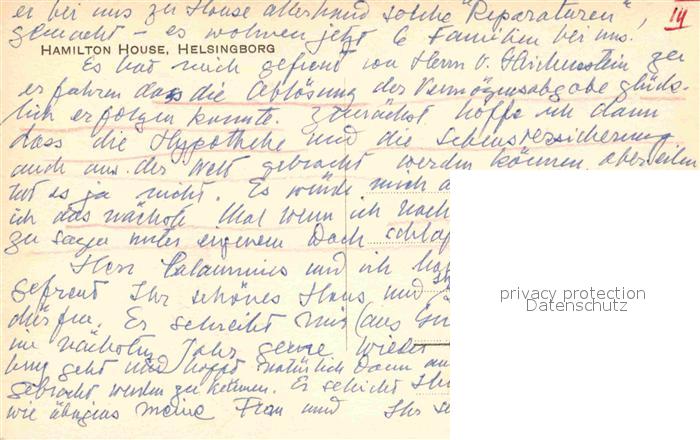 er bei uns zu Hause allerhand solche "Reparaturen",
IV
gemacht - es wohnen jetzt 6 Familien bei uns.
HAMILTON HOUSE, HELSINGBORG
Es hat mich gefreut von Herrn v. zu
erfahren dass die Ablösung der Vermögensabgabe glück-
lich erfolgen konnte. Zunächst hoffe ich dann
dass die Hypotheke und die Lebensversicherung
auch aus der Welt gebracht werden können, aber eilen
tut es ja nicht. Es würde mich
ich das nächste Mal wenn ich nach
zu sagen unter eigenem Dach
Herr und ich
gefreut Ihr schönes Haus und
dürfen. Er schreibt mir (aus
im nächsten Jahr gerne wieder
geht und hofft natürlich dann
gebracht werden zu können. Er schickt
wie übrigens meine Frau und Ihr
privacy protection
Datenschutz